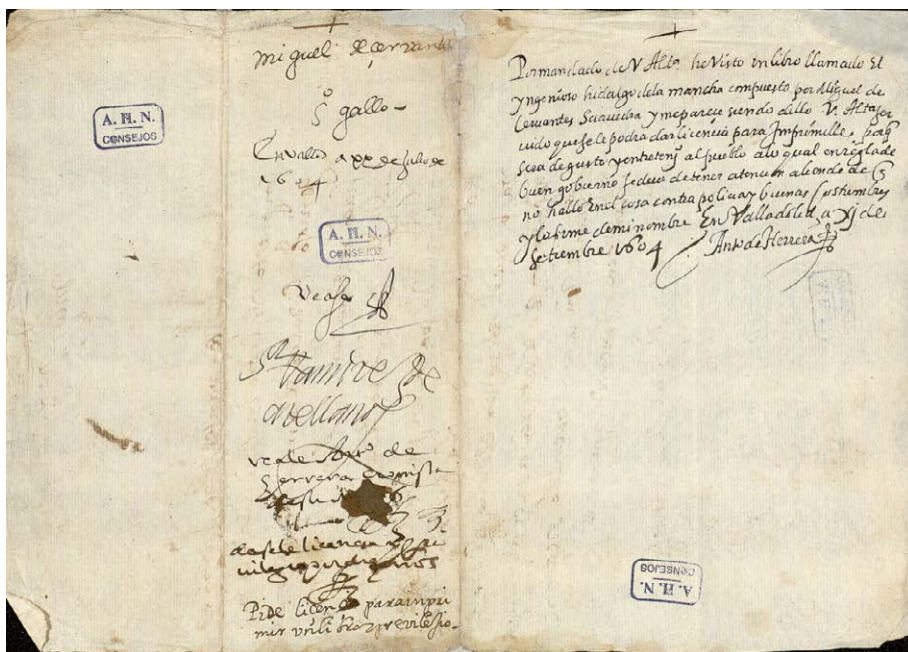 A. H. N.
CONSEJOS
Miguel de çervantes
Sº gallo
En Vallid a xx de Jullio de
1604
A. H. N.
CONSEJOS
Vease
Ramirez de
arellano
veale Antº de
Herrera cronista
desele licencia y
Pide licencia para inpri
mir un libro y previlesio.
Por mandado de V Altª he Visto un libro llamado El
yngenioso hidalgo de la mancha compuesto por Miguel de
Cervantes Saavedra y me parece siendo dello V. Altª ser
vido que se le podra dar licencia para Imprimille, porq
sera de gusto y entretenimº al pueblo a lo qual en regla de
buen gobierno se deve de tener atencion aliende de q
no hallo En el cosa contra policia y buenas costumbres
y lo firme de mi nombre En Valladolid a xj de
Setiembre 1604
Antº de Herrera
A. H. N.
CONSEJOS